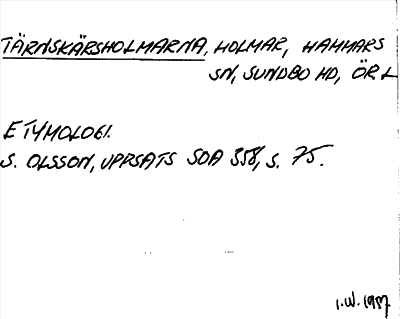 TÄRNSKÄRSHOLMARNA, HOLMAR, HAMMARS
SN, SUNDBO HD, ÖR L
ETYMOLOGI.
S. OLSSON, UPPSATS SOA 358, S. 75.
I.W. 1987.